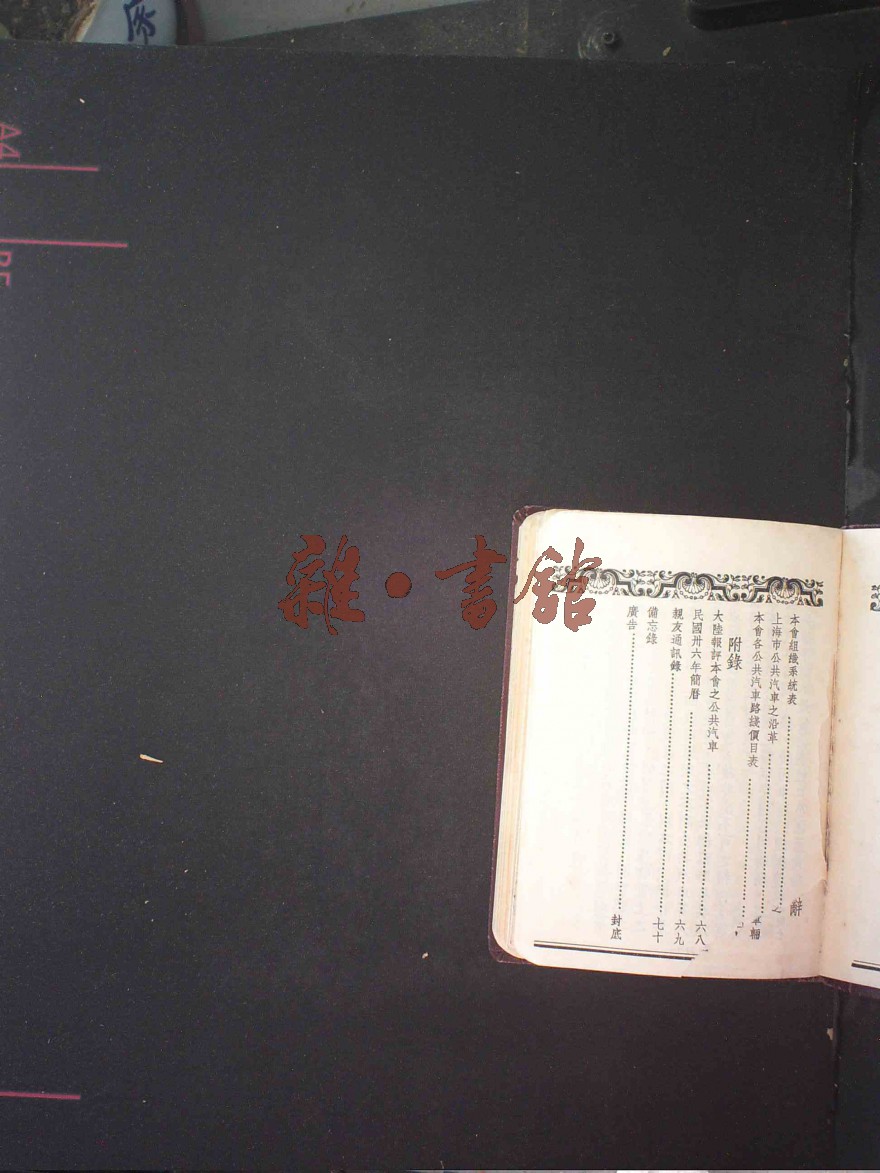 本會組織系統表
上海市公共汽車之沿革
本會各公共汽車路綫價目表
附錄
大陸報評本會之公共汽車
民國卅六年簡曆……六八
親友通訊錄……六九
備忘錄……七十
廣告……封底
雜·書館
A4